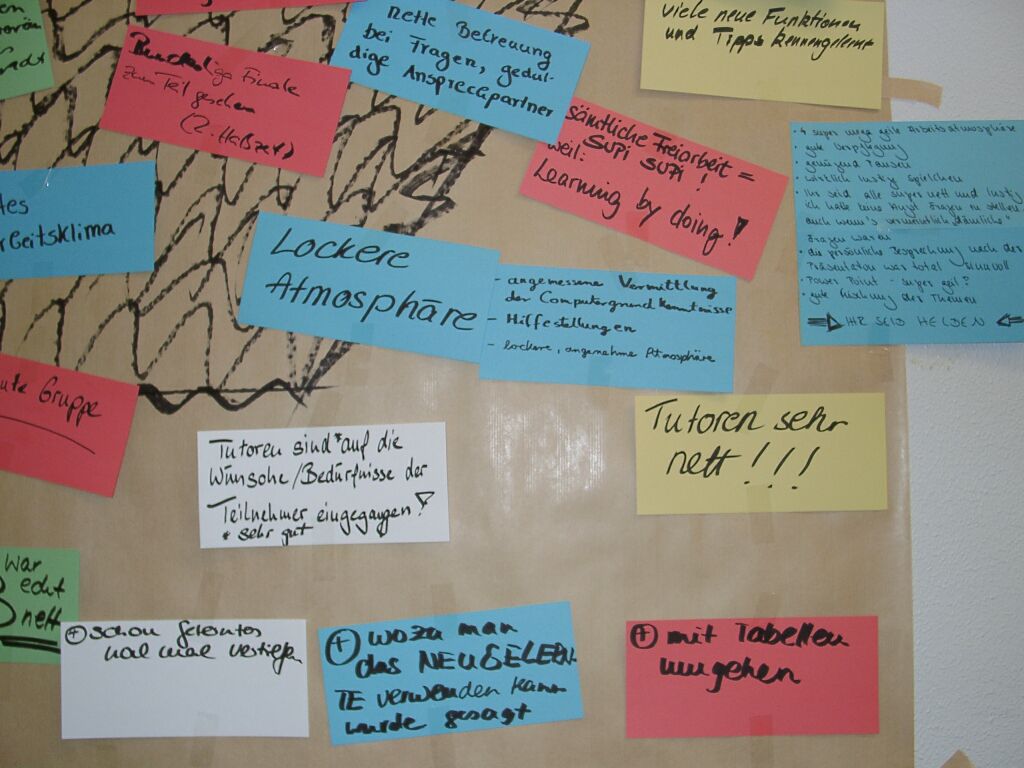 viele neue Funktionen
und Tipps kennengelernt
Nette Betreuung
bei Fragen, gedul-
dige Ansprechpartner
Finale
zum Teil gesehen
(2. Halbzeit)
sämtliche Freiarbeit =
SUPI SUPI !
weil:
Learning by doing!
• 4 super mega geile Arbeitsatmosphäre
• gute Verpflegung
• genügend Pausen
• lustige Spielchen
• Ihr seid alle super nett und lustig
ich hatte keine Angst Fragen zu stellen
auch wenn's vermeintlich "dämliche"
Fragen waren
• die persönliche Besprechung nach der
Präsentation war total sinnvoll
• Power Point - super geil!
• gute Mischung der Themen
⇒ IHR SEID HELDEN ⇐
tes
rbeitsklima
Lockere
Atmosphäre
- angemessene Vermittlung
der Computergrundkenntnisse
- Hilfestellungen
- lockere, angenehme Atmosphäre
ute Gruppe
Tutoren sind* auf die
Wünsche/Bedürfnisse der
Teilnehmer eingegangen!
* sehr gut
Tutoren sehr
nett!!!
War
echt
nett
⊕ schon gelerntes
nal mal vertiefen
⊕ wozu man
das NEUGELERN-
TE verwenden kann
wurde gesagt
⊕ mit Tabellen
umgehen